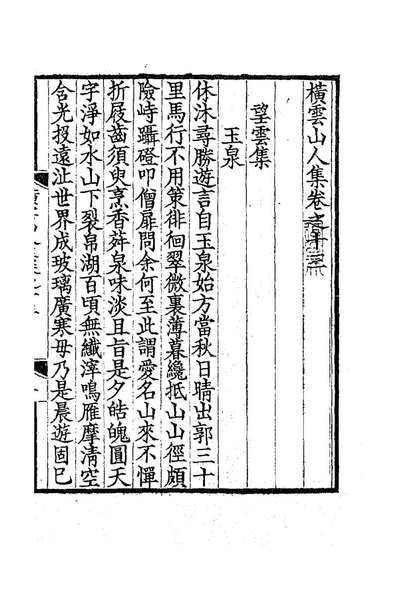 橫雲山人集卷之十三
望雲集
玉泉
休沐尋勝遊言自玉泉始方當秋日晴出郭三十
里馬行不用策徘徊翠微裏薄暮纔抵山山徑頗
險峙躡磴叩僧扉問余何至此謂愛名山來不憚
折屐齒須臾烹香荈泉味淡且旨是夕皓魄圓天
宇淨如水山下裂帛湖百頃無纖滓鳴雁摩淸空
含光投遠沚世界成玻璃廣寒毋乃是晨遊固已